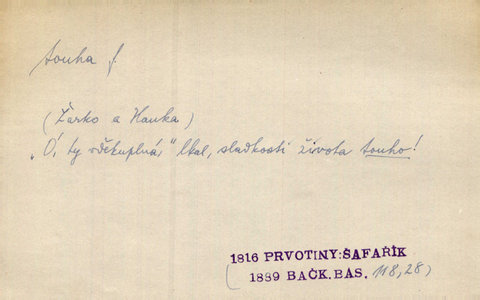 touha f.
(Žarko a Hanka)
„Ó, ty vděkuplná,“ lkal, „sladkosti života touho!
1816 PRVOTINY:ŠAFAŘÍK
( 1889 BAČK.BÁS. 118,28)